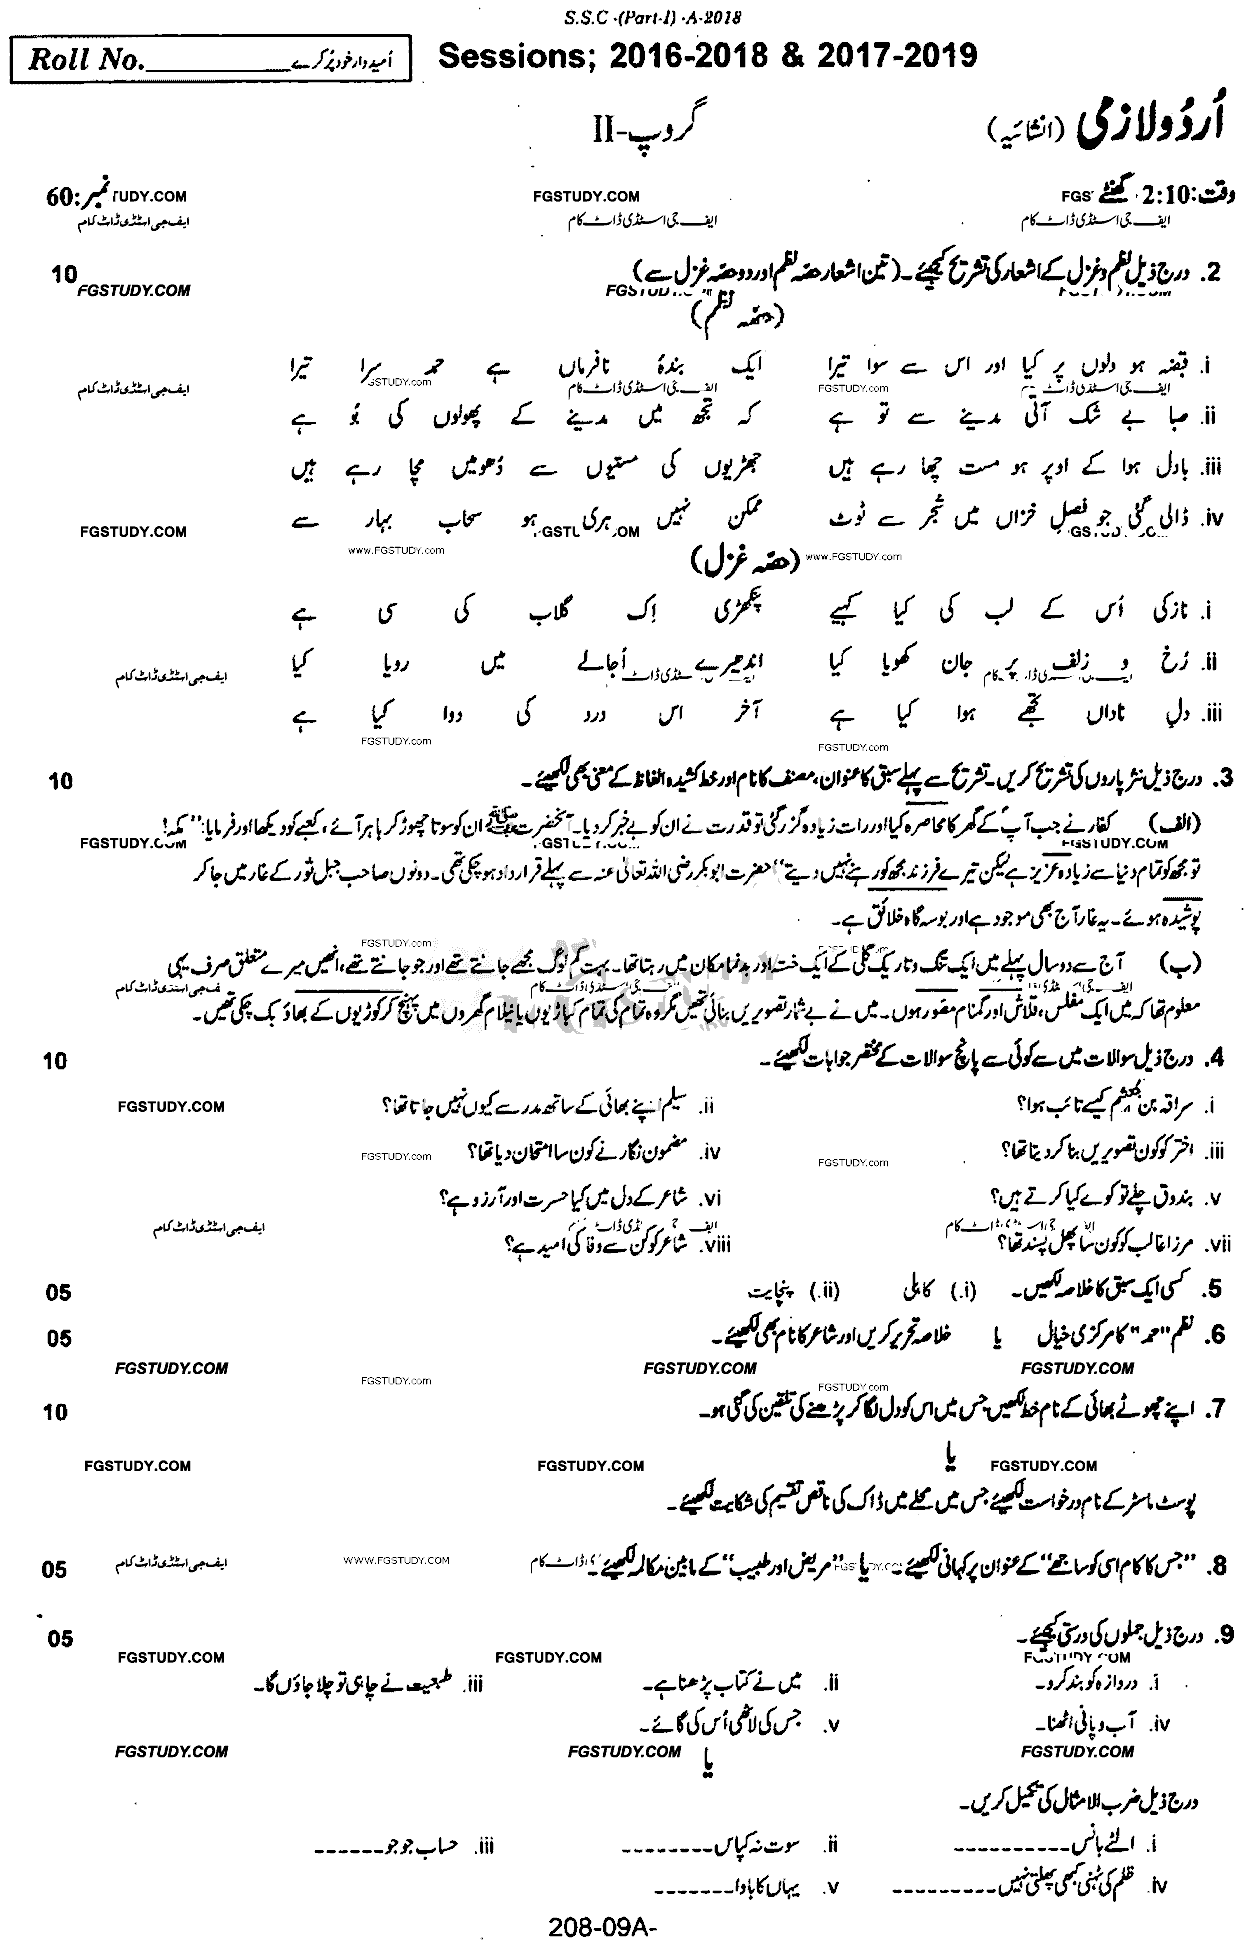 S.S.C -(Part-I) -A-2018
Roll No.__________ اُمیدوار خود پُر کرے
Sessions; 2016-2018 & 2017-2019
اُردو لازمی (انشائیہ) گروپ-II
وقت: 2:10 گھنٹے FGS FGSTUDY.COM نمبر: 60 TUDY.COM
ایف جی اسٹڈی ڈاٹ کام ایف جی اسٹڈی ڈاٹ کام ایف جی اسٹڈی ڈاٹ کام
2. درج ذیل نظم و غزل کے اشعار کی تشریح کیجئے۔ (تین اشعار حصّہ نظم اور دو حصّہ غزل سے) 10
FGSTUDY.COM
(حصّہ نظم)
i. قبضہ ہو دلوں پر کیا اور اس سے سوا تیرا ایک بندۂ نافرماں ہے حمد سرا تیرا
ایف جی اسٹڈی ڈاٹ کام FGSTUDY.com ایف جی اسٹڈی ڈاٹ کام FGSTUDY.com ایف جی اسٹڈی ڈاٹ کام
ii. صبا بے شک آئی مدینے سے تو ہے کہ تجھ میں مدینے کے پھولوں کی بُو ہے
iii. بادل ہوا کے اوپر ہو مست چھا رہے ہیں جھڑیوں کی مستیوں سے دُھومیں مچا رہے ہیں
iv. ڈالی گئی جو فصلِ خزاں میں شجر سے ٹوٹ ممکن نہیں ہری ہو سحابِ بہار سے
FGSTUDY.COM
www.FGSTUDY.com (حصّہ غزل) www.FGSTUDY.com
i. نازکی اُس کے لب کی کیا کہیے پنکھڑی اِک گلاب کی سی ہے
ii. رُخ و زلف پر جان کھویا کیا اندھیرے اُجالے میں رویا کیا
ایف جی اسٹڈی ڈاٹ کام
iii. دلِ ناداں تجھے ہوا کیا ہے آخر اس درد کی دوا کیا ہے
FGSTUDY.com FGSTUDY.com
3. درج ذیل نثر پاروں کی تشریح کریں۔ تشریح سے پہلے سبق کا عنوان، مصنف کا نام اور خط کشیدہ الفاظ کے معنی بھی لکھیئے۔ 10
(الف) کفار نے جب آپؐ کے گھر کا محاصرہ کیا اور رات زیادہ گزر گئی تو قدرت نے ان کو بے خبر کر دیا۔ آنحضرت ﷺ ان کو سوتا چھوڑ کر باہر آئے، کعبے کو دیکھا اور فرمایا: "مکہ!
FGSTUDY.COM FGSTUDY.COM
تو مجھ کو تمام دنیا سے زیادہ عزیز ہے لیکن تیرے فرزند مجھ کو رہنے نہیں دیتے" حضرت ابوبکر رضی اللہ تعالیٰ عنہ سے پہلے قرارداد ہو چکی تھی۔ دونوں صاحب جبل ثور کے غار میں جا کر
پوشیدہ ہوئے۔ یہ غار آج بھی موجود ہے اور بوسہ گاہ خلائق ہے۔
FGSTUDY.com
(ب) آج سے دو سال پہلے میں ایک تنگ و تاریک گلی کے ایک خستہ اور بدنما مکان میں رہتا تھا۔ بہت کم لوگ مجھے جانتے تھے اور جو جانتے تھے، انھیں میرے متعلق صرف یہی
معلوم تھا کہ میں ایک مفلس، قلاش اور گمنام مصور ہوں۔ میں نے بے شمار تصویریں بنائی تھیں مگر وہ تمام کی تمام کباڑیوں یا نیلام گھروں میں پہنچ کر کوڑیوں کے بھاؤ بک چکی تھیں۔
4. درج ذیل سوالات میں سے کوئی سے پانچ سوالات کے مختصر جوابات لکھیئے۔ 10
i. سراقہ بن جعشم کیسے تائب ہوا؟ ii. سلیم اپنے بھائی کے ساتھ مدرسے کیوں نہیں جاتا تھا؟ FGSTUDY.COM
iii. اختر کو کون تصویریں بنا کر دیتا تھا؟ iv. مضمون نگار نے کون سا امتحان دیا تھا؟
FGSTUDY.com FGSTUDY.com
v. بندوق چلے تو کوے کیا کرتے ہیں؟ vi. شاعر کے دل میں کیا حسرت اور آرزو ہے؟
ایف جی اسٹڈی ڈاٹ کام
vii. مرزا غالب کو کون سا پھل پسند تھا؟ viii. شاعر کو کن سے وفا کی امید ہے؟
5. کسی ایک سبق کا خلاصہ لکھیں۔ (i.) کاہلی (ii.) پنچایت 05
6. نظم "حمد" کا مرکزی خیال یا خلاصہ تحریر کریں اور شاعر کا نام بھی لکھیئے۔ 05
FGSTUDY.COM FGSTUDY.COM FGSTUDY.COM
FGSTUDY.com FGSTUDY.com
7. اپنے چھوٹے بھائی کے نام خط لکھیں جس میں اس کو دل لگا کر پڑھنے کی تلقین کی گئی ہو۔ 10
یا
FGSTUDY.COM FGSTUDY.COM FGSTUDY.COM
پوسٹ ماسٹر کے نام درخواست لکھیئے جس میں محلے میں ڈاک کی ناقص تقسیم کی شکایت لکھیئے۔
8. "جس کا کام اسی کو ساجھے" کے عنوان پر کہانی لکھیئے۔ یا "مریض اور طبیب" کے مابین مکالمہ لکھیئے۔ 05
WWW.FGSTUDY.COM ایف جی اسٹڈی ڈاٹ کام
9. درج ذیل جملوں کی درستی کیجئے۔ 05
FGSTUDY.COM FGSTUDY.COM FGSTUDY.COM
i. دروازہ کو بند کرو۔ ii. میں نے کتاب پڑھنا ہے۔ iii. طبیعت نے چاہی تو چلا جاؤں گا۔
iv. آب و پانی اٹھنا۔ v. جس کی لاٹھی اُس کی گائے۔
FGSTUDY.COM FGSTUDY.COM FGSTUDY.COM
یا
درج ذیل ضرب الامثال کی تکمیل کریں۔
i. الٹے بانس---------- ii. سوت نہ کپاس-------- iii. حساب جو جو------
iv. ظلم کی ٹہنی کبھی پھلتی نہیں---------- v. یہاں کا باوا-------
208-09A-